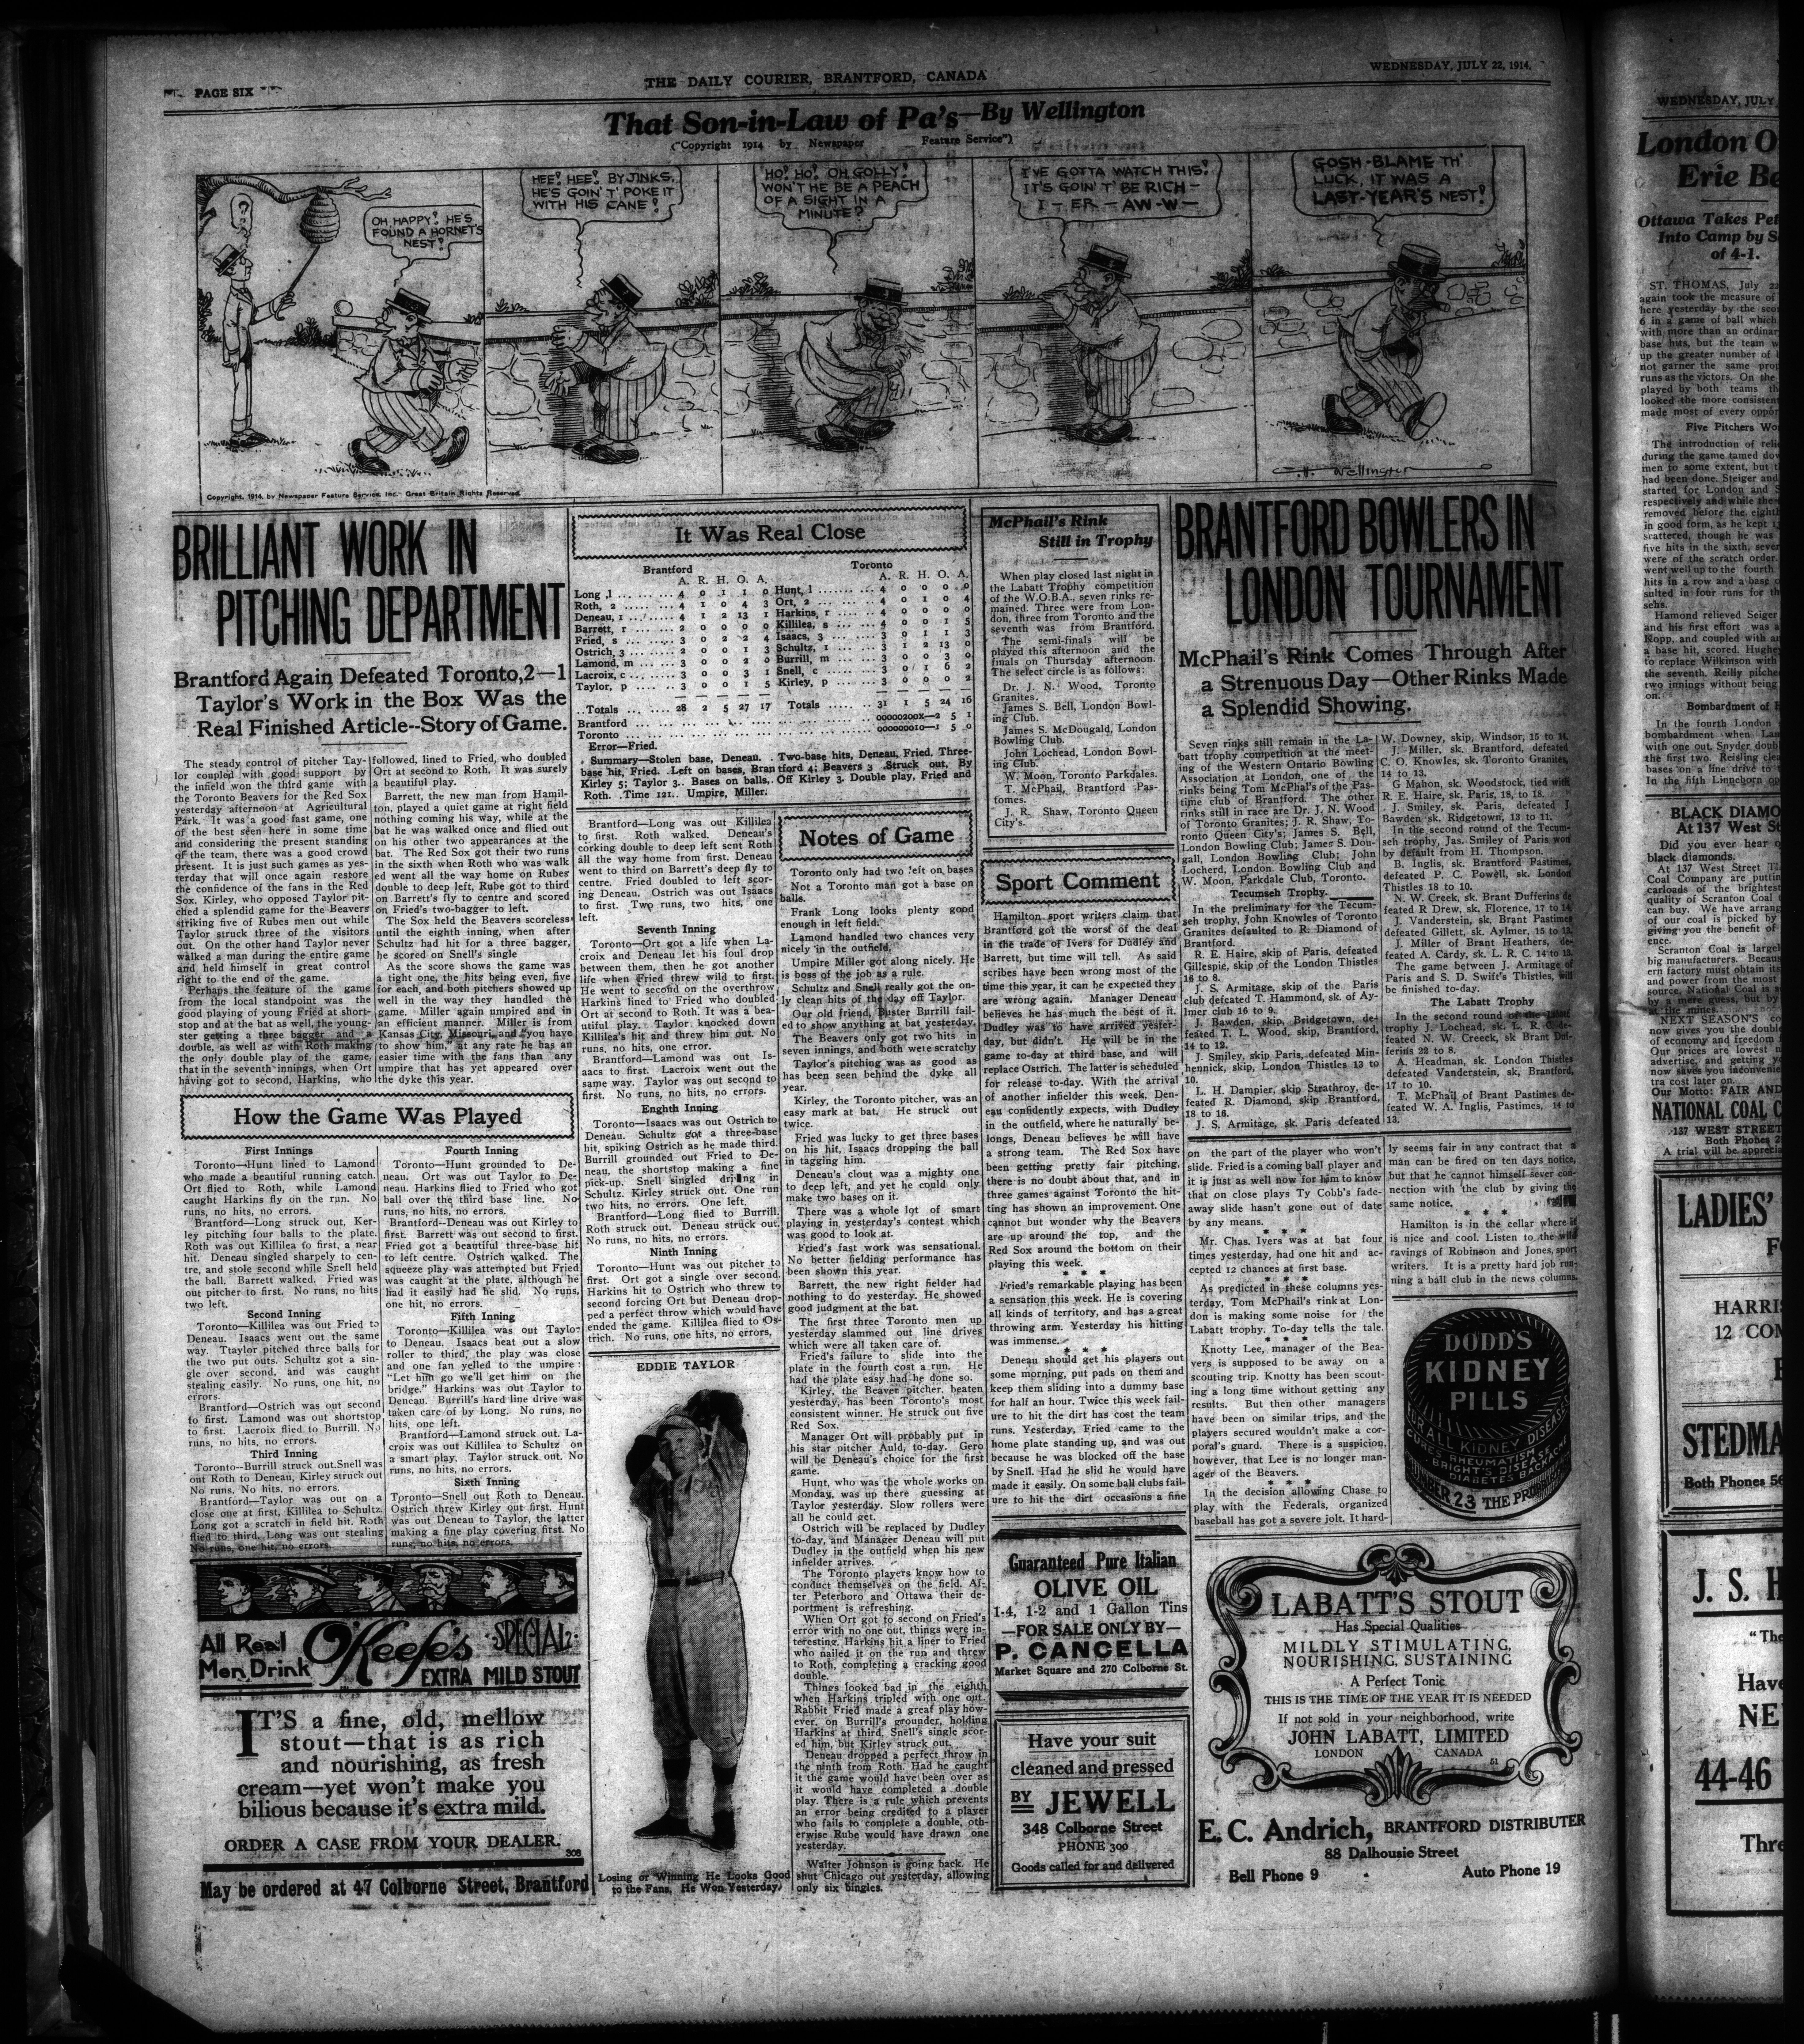 PAGE SIX
THE DAILY COURIER, BRANTFORD, CANADA
WEDNESDAY, JULY 22, 1914.
That Son-in-Law of Pa's—By Wellington
("Copyright 1914 by Newspaper Feature Service")
OH HAPPY! HE'S
FOUND A HORNET'S
NEST!
HEE! HEE! BY JINKS,
HE'S GOIN' T' POKE IT
WITH HIS CANE!
HO! HO! OH GOLLY!
WON'T HE BE A PEACH
OF A SIGHT IN A
MINUTE?
I'VE GOTTA WATCH THIS!
IT'S GOIN' T' BE RICH—
I—ER—AW-W—
GOSH-BLAME TH'
LUCK, IT WAS A
LAST-YEAR'S NEST!
Copyright, 1914, by Newspaper Feature Service, Inc. Great Britain Rights Reserved.
BRILLIANT WORK IN
PITCHING DEPARTMENT
Brantford Again Defeated Toronto, 2—1
Taylor's Work in the Box Was the
Real Finished Article--Story of Game.
The steady control of pitcher Tay-
lor coupled with good support by
the infield won the third game with
the Toronto Beavers for the Red Sox
yesterday afternoon at Agricultural
Park. It was a good fast game, one
of the best seen here in some time
and considering the present standing
of the team, there was a good crowd
present. It is just such games as yes-
terday that will once again restore
the confidence of the fans in the Red
Sox. Kirley, who opposed Taylor pit-
ched a splendid game for the Beavers
striking five of Rubes men out while
Taylor struck three of the visitors
out. On the other hand Taylor never
walked a man during the entire game
and held himself in great control
right to the end of the game.
Perhaps the feature of the game
from the local standpoint was the
good playing of young Fried at short-
stop and at the bat as well, the young-
ster getting a three bagger and a
double, as well as with Roth making
the only double play of the game,
that in the seventh innings, when Ort
having got to second, Harkins, who
followed, lined to Fried, who doubled
Ort at second to Roth. It was surely
a beautiful play.
Barrett, the new man from Hamil-
ton, played a quiet game at right field
nothing coming his way, while at the
bat he was walked once and flied out
on his other two appearances at the
bat. The Red Sox got their two runs
in the sixth when Roth who was walk
ed went all the way home on Rubes
double to deep left, Rube got to third
on Barrett's fly to centre and scored
on Fried's two-bagger to left.
The Sox held the Beavers scoreless
until the eighth inning, when after
Schultz had hit for a three bagger,
he scored on Snell's single
As the score shows the game was
a tight one, the hits being even, five
for each, and both pitchers showed up
well in the way they handled the
game. Miller again umpired and in
an efficient manner. Miller is from
Kansas City, Missouri, and "you have
to show him," at any rate he has an
easier time with the fans than any
umpire that has yet appeared over
the dyke this year.
How the Game Was Played
First Innings
Toronto—Hunt lined to Lamond
who made a beautiful running catch.
Ort flied to Roth, while Lamond
caught Harkins fly on the run. No
runs, no hits, no errors.
Brantford—Long struck out, Ker-
ley pitching four balls to the plate.
Roth was out Killilea to first, a near
hit. Deneau singled sharply to cen-
tre, and stole second while Snell held
the ball. Barrett walked. Fried was
out pitcher to first. No runs, no hits
two left.
Second Inning
Toronto—Killilea was out Fried to
Deneau. Isaacs went out the same
way. Ttaylor pitched three balls for
the two put outs. Schultz got a sin-
gle over second, and was caught
stealing easily. No runs, one hit, no
errors.
Brantford—Ostrich was out second
to first. Lamond was out shortstop
to first. Lacroix flied to Burrill. No
runs, no hits, no errors.
Third Inning
Toronto--Burrill struck out. Snell was
out Roth to Deneau, Kirley struck out
No runs, No hits, no errors.
Brantford—Taylor was out on a
close one at first, Killilea to Schultz.
Long got a scratch in field hit. Roth
flied to third. Long was out stealing
No runs, one hit, no errors.
Fourth Inning
Toronto—Hunt grounded to De-
neau. Ort was out Taylor to De-
neau. Harkins flied to Fried who got
ball over the third base line. No
runs, no hits, no errors.
Brantford--Deneau was out Kirley to
first. Barrett was out second to first.
Fried got a beautiful three-base hit
to left centre. Ostrich walked. The
squeeze play was attempted but Fried
was caught at the plate, although he
had it easily had he slid. No runs,
one hit, no errors.
Fifth Inning
Toronto—Killilea was out Taylo-
to Deneau. Isaacs beat out a slow
roller to third, the play was close
and one fan yelled to the umpire
"Let him go we'll get him on the
bridge." Harkins was out Taylor to
Deneau. Burrill's hard line drive was
taken care of by Long. No runs, no
hits, one left.
Brantford—Lamond struck out. La-
croix was out Killilea to Schultz on
a smart play. Taylor struck out. No
runs, no hits, no errors.
Sixth Inning
Toronto—Snell out Roth to Deneau.
Ostrich threw Kirley out first. Hunt
was out Deneau to Taylor, the latter
making a fine play covering first. No
runs, no hits, no errors.
All Real
Men Drink
O'Keefe's SPECIAL
EXTRA MILD STOUT
IT'S a fine, old, mellow
stout—that is as rich
and nourishing, as fresh
cream—yet won't make you
bilious because it's extra mild.
ORDER A CASE FROM YOUR DEALER.
308
May be ordered at 47 Colborne Street, Brantford
It Was Real Close
Brantford
A. R. H. O. A.
Long, l ........ 4 0 1 1 0
Roth, 2 ........ 4 1 0 4 3
Deneau, 1 ........ 4 1 2 13 1
Barrett, r ........ 2 0 0 0 0
Fried, s ........ 3 0 2 2 4
Ostrich, 3 ........ 2 0 0 1 3
Lamond, m ........ 3 0 0 2 0
Lacroix, c ........ 3 0 0 3 1
Taylor, p ........ 3 0 0 1 5
Totals ........ 28 2 5 27 17
Toronto
A. R. H. O. A.
Hunt, l ........ 4 0 0 0 0
Ort, 2 ........ 4 0 1 0 4
Harkins, r ........ 4 0 0 0 0
Killilea, s ........ 4 0 0 1 5
Isaacs, 3 ........ 3 0 1 1 3
Schultz, 1 ........ 3 1 2 13 0
Burrill, m ........ 3 0 0 3 0
Snell, c ........ 3 0 1 6 2
Kirley, p ........ 3 0 0 0 2
Totals ........ 31 1 5 24 16
Brantford ........ 00000200X—2 5 1
Toronto ........ 000000010—1 5 0
Error—Fried.
Summary—Stolen base, Deneau. Two-base hits, Deneau, Fried. Three-
base hit, Fried. Left on bases, Brantford 4; Beavers 3 Struck out, By
Kirley 5; Taylor 3. Bases on balls, Off Kirley 3. Double play, Fried and
Roth. Time 121. Umpire, Miller.
Brantford—Long was out Killilea
to first. Roth walked. Deneau's
corking double to deep left sent Roth
all the way home from first. Deneau
went to third on Barrett's deep fly to
centre. Fried doubled to left scor-
ing Deneau. Ostrich was out Isaacs
to first. Two runs, two hits, one
left.
Seventh Inning
Toronto—Ort got a life when La-
croix and Deneau let his foul drop
between them, then he got another
life when Fried threw wild to first.
He went to second on the overthrow
Harkins lined to Fried who doubled
Ort at second to Roth. It was a bea-
utiful play. Taylor knocked down
Killilea's hit and threw him out. No
runs, no hits, one error.
Brantford—Lamond was out Is-
aacs to first. Lacroix went out the
same way. Taylor was out second to
first. No runs, no hits, no errors.
Enghth Inning
Toronto—Isaacs was out Ostrich to
Deneau. Schultz got a three-base
hit, spiking Ostrich as he made third.
Burrill grounded out Fried to De-
neau, the shortstop making a fine
pick-up. Snell singled driving in
Schultz. Kirley struck out. One run
two hits, no errors. One left.
Brantford—Long flied to Burrill.
Roth struck out. Deneau struck out.
No runs, no hits, no errors.
Ninth Inning
Toronto—Hunt was out pitcher to
first. Ort got a single over second.
Harkins hit to Ostrich who threw to
second forcing Ort but Deneau drop-
ped a perfect throw which would have
ended the game. Killilea flied to Os-
trich. No runs, one hits, no errors.
EDDIE TAYLOR
Losing or Winning He Looks Good
to the Fans, He Won Yesterday.
Notes of Game
Toronto only had two left on bases
Not a Toronto man got a base on
balls.
Frank Long looks plenty good
enough in left field.
Lamond handled two chances very
nicely in the outfield.
Umpire Miller got along nicely. He
is boss of the job as a rule.
Schultz and Snell really got the on-
ly clean hits of the day off Taylor.
Our old friend, Buster Burrill fail-
ed to show anything at bat yesterday.
The Beavers only got two hits in
seven innings, and both were scratchy
Taylor's pitching was as good as
has been seen behind the dyke all
year.
Kirley, the Toronto pitcher, was an
easy mark at bat. He struck out
twice.
Fried was lucky to get three bases
on his hit, Isaacs dropping the ball
in tagging him.
Deneau's clout was a mighty one
to deep left, and yet he could only
make two bases on it.
There was a whole lot of smart
playing in yesterday's contest which
was good to look at.
Fried's fast work was sensational.
No better fielding performance has
been shown this year.
Barrett, the new right fielder had
nothing to do yesterday. He showed
good judgment at the bat.
The first three Toronto men up
yesterday slammed out line drives
which were all taken care of.
Fried's failure to slide into the
plate in the fourth cost a run. He
had the plate easy had he done so.
Kirley, the Beaver pitcher, beaten
yesterday, has been Toronto's most
consistent winner. He struck out five
Red Sox.
Manager Ort will probably put in
his star pitcher Auld, to-day. Gero
will be Deneau's choice for the first
game.
Hunt, who was the whole works on
Monday, was up there guessing at
Taylor yesterday. Slow rollers were
all he could get.
Ostrich will be replaced by Dudley
to-day, and Manager Deneau will put
Dudley in the outfield when his new
infielder arrives.
The Toronto players know how to
conduct themselves on the field. Af-
ter Peterboro and Ottawa their de-
portment is refreshing.
When Ort got to second on Fried's
error with no one out, things were in-
teresting. Harkins hit a liner to Fried
who nailed it on the run and threw
to Roth, completing a cracking good
double.
Things looked bad in the eighth
when Harkins tripled with one out.
Rabbit Fried made a great play how-
ever, on Burrill's grounder, holding
Harkins at third, Snell's single scor-
ed him, but Kirley struck out.
Deneau dropped a perfect throw in
the ninth from Roth. Had he caught
it the game would have been over as
it would have completed a double
play. There is a rule which prevents
an error being credited to a player
who fails to complete a double, oth-
erwise Rube would have drawn one
yesterday.
Walter Johnson is going back. He
shut Chicago out yesterday, allowing
only six bingles.
McPhail's Rink
Still in Trophy
When play closed last night in
the Labatt Trophy competition
of the W.O.B.A., seven rinks re-
mained. Three were from Lon-
don, three from Toronto and the
seventh was from Brantford.
The semi-finals will be
played this afternoon and the
finals on Thursday afternoon.
The select circle is as follows:
Dr. J. N. Wood, Toronto
Granites.
James S. Bell, London Bowl-
ing Club.
James S. McDougald, London
Bowling Club.
John Lochead, London Bowl-
ing Club.
W. Moon, Toronto Parkdales.
T. McPhail, Brantford Pas-
tomes.
J. R. Shaw, Toronto Queen
City's.
Sport Comment
Hamilton sport writers claim that
Brantford got the worst of the deal
in the trade of Ivers for Dudley and
Barrett, but time will tell. As said
scribes have been wrong most of the
time this year, it can be expected they
are wrong again. Manager Deneau
believes he has much the best of it.
Dudley was to have arrived yester-
day, but didn't. He will be in the
game to-day at third base, and will
replace Ostrich. The latter is scheduled
for release to-day. With the arrival
of another infielder this week, Den-
eau confidently expects, with Dudley
in the outfield, where he naturally be-
longs, Deneau believes he will have
a strong team. The Red Sox have
been getting pretty fair pitching,
there is no doubt about that, and in
three games against Toronto the hit-
ting has shown an improvement. One
cannot but wonder why the Beavers
are up around the top, and the
Red Sox around the bottom on their
playing this week.
* * *
Fried's remarkable playing has been
a sensation this week. He is covering
all kinds of territory, and has a great
throwing arm. Yesterday his hitting
was immense.
* * *
Deneau should get his players out
some morning, put pads on them and
keep them sliding into a dummy base
for half an hour. Twice this week fail-
ure to hit the dirt has cost the team
runs. Yesterday, Fried came to the
home plate standing up, and was out
because he was blocked off the base
by Snell. Had he slid he would have
made it easily. On some ball clubs fail-
ure to hit the dirt occasions a fine
on the part of the player who won't
slide. Fried is a coming ball player and
it is just as well now for him to know
that on close plays Ty Cobb's fade-
away slide hasn't gone out of date
by any means.
* * *
Mr. Chas. Ivers was at bat four
times yesterday, had one hit and ac-
cepted 12 chances at first base.
* * *
As predicted in these columns yes-
terday, Tom McPhail's rink at Lon-
don is making some noise for the
Labatt trophy. To-day tells the tale.
* * *
Knotty Lee, manager of the Bea-
vers is supposed to be away on a
scouting trip. Knotty has been scout-
ing a long time without getting any
results. But then other managers
have been on similar trips, and the
players secured wouldn't make a cor-
poral's guard. There is a suspicion,
however, that Lee is no longer man-
ager of the Beavers.
* * *
In the decision allowing Chase to
play with the Federals, organized
baseball has got a severe jolt. It hard-
ly seems fair in any contract that a
man can be fired on ten days notice,
but that he cannot himself sever con-
nection with the club by giving the
same notice.
* * *
Hamilton is in the cellar where it
is nice and cool. Listen to the wild
ravings of Robinson and Jones, sport
writers. It is a pretty hard job run-
ning a ball club in the news columns.
Guaranteed Pure Italian
OLIVE OIL
1-4, 1-2 and 1 Gallon Tins
—FOR SALE ONLY BY—
P. CANCELLA
Market Square and 270 Colborne St.
Have your suit
cleaned and pressed
BY JEWELL
348 Colborne Street
PHONE 300
Goods called for and delivered
BRANTFORD BOWLERS IN
LONDON TOURNAMENT
McPhail's Rink Comes Through After
a Strenuous Day—Other Rinks Made
a Splendid Showing.
Seven rinks still remain in the La-
batt trophy competition at the meet-
ing of the Western Ontario Bowling
Association at London, one of the
rinks being Tom McPhal's of the Pas-
time club of Brantford. The other
rinks still in race are Dr. J. N. Wood
of Toronto Granites; J. R. Shaw, To-
ronto Queen City's; James S. Bell,
London Bowling Club; James S. Dou-
gall, London Bowling Club; John
Locherd, London Bowling Club; and
W. Moon, Parkdale Club, Toronto.
Tecumseh Trophy.
In the preliminary for the Tecum-
seh trophy, John Knowles of Toronto
Granites defaulted to R. Diamond of
Brantford.
R. E. Haire, sk. Paris, defeated
Gillespie, skip of the London Thistles
16 to 8.
J. S. Armitage, skip of the Paris
club defeated T. Hammond, sk. of Ay-
lmer club 16 to 9.
J. Bawden, skip, Bridgetown, de-
feated T. L. Wood, skip, Brantford,
14 to 12.
J. Smiley, skip Paris, defeated Min-
hennick, skip, London Thistles 13 to
10.
L. H. Dampier, skip Strathroy, de-
feated R. Diamond, skip Brantford,
18 to 16.
J. S. Armitage, sk. Paris defeated
W. Downey, skip, Windsor, 15 to 14.
J. Miller, sk. Brantford, defeated
C. O. Knowles, sk. Toronto Granites,
14 to 13.
G Mahon, sk. Woodstock, tied with
R. E. Haire, sk. Paris, 18, to 18.
J. Smiley, sk. Paris, defeated J
Bawden sk. Ridgetown, 13 to 11.
In the second round of the Tecum-
seh trophy, Jas. Smiley of Paris won
by default from H. Thompson.
B. Inglis, sk. Brantford Pastimes,
defeated P. C. Powell, sk. London
Thistles 18 to 10.
N. W. Creek, sk. Brant Dufferins de-
feated R Drew, sk. Florence, 17 to 14
J. Vanderstein, sk. Brant Pastimes
defeated Gillett, sk. Aylmer, 15 to 13.
J. Miller of Brant Heathers, de-
feated A. Cardy, sk. L. R. C. 14 to 13.
The game between J. Armitage of
Paris and S. D. Swift's Thistles, will
be finished to-day.
The Labatt Trophy
In the second round of the Labatt
trophy J. Lochead, sk. L. R. C. de-
feated N. W. Creeck, sk Brant Duf-
ferins 22 to 8.
A. Headman, sk. London Thistles
defeated Vanderstein, sk, Brantford,
17 to 10.
T. McPhail of Brant Pastimes de-
feated W. A. Inglis, Pastimes, 14 to
13.
DODD'S
KIDNEY
PILLS
CURES ALL KIDNEY DISEASES
RHEUMATISM
BRIGHT'S DISEASE
DIABETES BACKACHE
NUMBER 23 THE
LABATT'S STOUT
Has Special Qualities
MILDLY STIMULATING,
NOURISHING, SUSTAINING
A Perfect Tonic
THIS IS THE TIME OF THE YEAR IT IS NEEDED
If not sold in your neighborhood, write
JOHN LABATT, LIMITED
LONDON CANADA
51
E. C. Andrich, BRANTFORD DISTRIBUTER
88 Dalhousie Street
Bell Phone 9
Auto Phone 19
WEDNESDAY, JULY
London O
Erie Be
Ottawa Takes Pet
Into Camp by S
of 4-1.
ST. THOMAS, July 22
again took the measure of
here yesterday by the scor
6 in a game of ball which
with more than an ordinar
base hits, but the team w
up the greater number of
not garner the same prop
runs as the victors. On the
played by both teams th
looked the more consistent
made most of every oppor
Five Pitchers Wo
The introduction of relie
during the game tamed dow
men to some extent, but t
had been done. Steiger and
started for London and S
respectively and while the
removed before the eighth
in good form, as he kept 1
scattered, though he was
five hits in the sixth, seve
were of the scratch order.
went well up to the fourth
hits in a row and a base o
sulted in four runs for th
sehs.
Hamond relieved Seiger
and his first effort was a
Nopp, and coupled with an
a base hit, scored. Hughe
to replace Wilkinson with
the seventh. Reilly pitche
two innings without being
on.
Bombardment of
In the fourth London
bombardment when Lam
with one out, Snyder doubl
the first two. Reisling clea
bases on a line drive to
in the fifth Linneborn op
BLACK DIAMO
At 137 West St
Did you ever hear o
black diamonds.
At 137 West Street T
Coal Company are puttin
carloads of the brightest
quality of Scranton Coal
can buy. We have arrang
of our coal is picked by
giving you the benefit of
ence.
Scranton Coal is largel
big manufacturers. Becau
ern factory must obtain its
and power from the most
source, National Coal is a
by a mere guess, but by
at the mines.
NEXT SEASON'S co
now gives you the double
of economy and freedom
Our prices are lowest n
advertise, and getting yo
now saves you inconvenie
tra cost later on.
Our Motto: FAIR AND
NATIONAL COAL C
137 WEST STREET
Both Phones
A trial will be apprecia
LADIES'
HARRIS
12 CON
STEDMA
Both Phones 56
J. S. H
"The
Have
NE
44-46
Thre